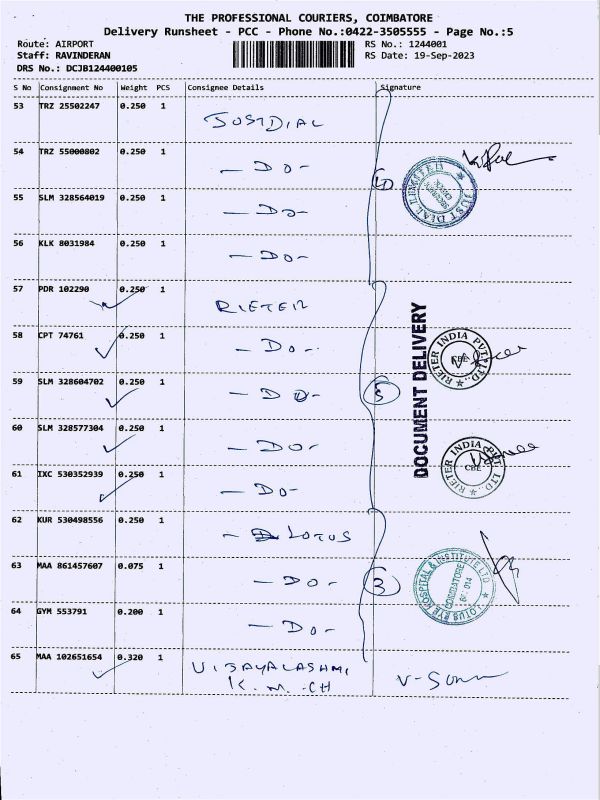 THE PROFESSIONAL COURIERS, COIMBATORE
Delivery Runsheet - PCC - Phone No.:0422-3505555 - Page No.:5
Route: AIRPORT RS No.: 1244001
Staff: RAVINDERAN RS Date: 19-Sep-2023
DRS No.: DCJB124400105
S No Consignment No Weight PCS Consignee Details Signature
53 TRZ 25502247 0.250 1 JUSTDIAL
54 TRZ 55000802 0.250 1 - DO -
55 SLM 328564019 0.250 1 - DO -
56 KLK 8031984 0.250 1 - DO -
JUST DIAL LIMITED
57 PDR 102290 0.250 1 RIETER
58 CPT 74761 0.250 1 - DO -
59 SLM 328604702 0.250 1 - DO - 5
60 SLM 328577304 0.250 1 - DO -
61 IXC 530352939 0.250 1 - DO -
DOCUMENT DELIVERY
RIETER INDIA PVT. LTD.
CBE
RIETER INDIA PVT. LTD.
CBE
62 KUR 530498556 0.250 1 - LOTUS
63 MAA 861457607 0.075 1 - DO - 3
64 GYM 553791 0.200 1 - DO -
LOTUS EYE HOSPITAL & INSTITUTE LTD
COIMBATORE
641 014
65 MAA 102651654 0.320 1 VIJAYALASHMI
K. M. CH